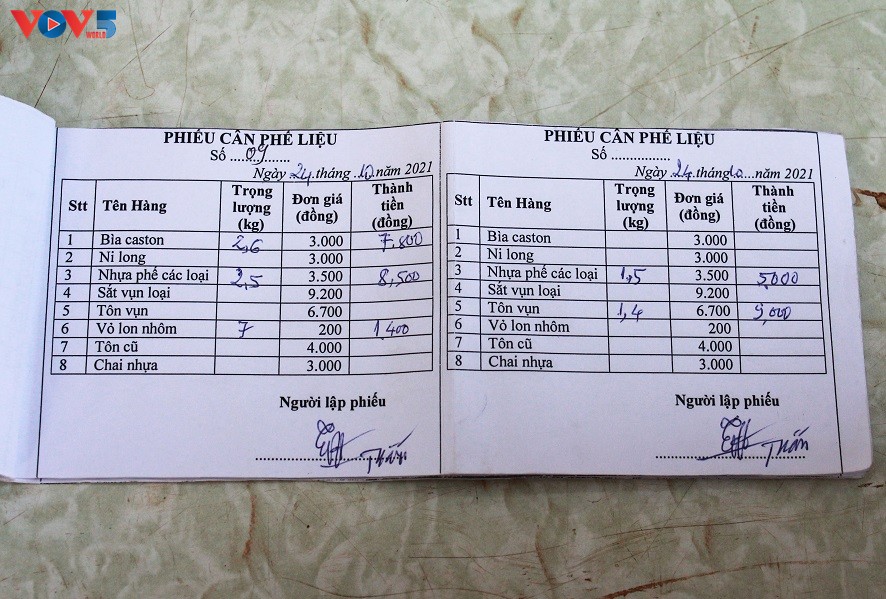 VOV5
WORLD
PHIẾU CÂN PHẾ LIỆU
Số ....09.......
Ngày .24.tháng .10.năm 2021
Stt Tên Hàng Trọng lượng (kg) Đơn giá (đồng) Thành tiền (đồng)
1 Bìa caston 2,6 3.000 7,800
2 Ni long 3.000
3 Nhựa phế các loại 2,5 3.500 8,500
4 Sắt vụn loại 9.200
5 Tôn vụn 6.700
6 Vỏ lon nhôm 7 200 1,400
7 Tôn cũ 4.000
8 Chai nhựa 3.000
Người lập phiếu
Thấn
PHIẾU CÂN PHẾ LIỆU
Số .............
Ngày .24.tháng10....năm 2021
Stt Tên Hàng Trọng lượng (kg) Đơn giá (đồng) Thành tiền (đồng)
1 Bìa caston 3.000
2 Ni long 3.000
3 Nhựa phế các loại 1,5 3.500 5,000
4 Sắt vụn loại 9.200
5 Tôn vụn 1,4 6.700 9,000
6 Vỏ lon nhôm 200
7 Tôn cũ 4.000
8 Chai nhựa 3.000
Người lập phiếu
Thấn